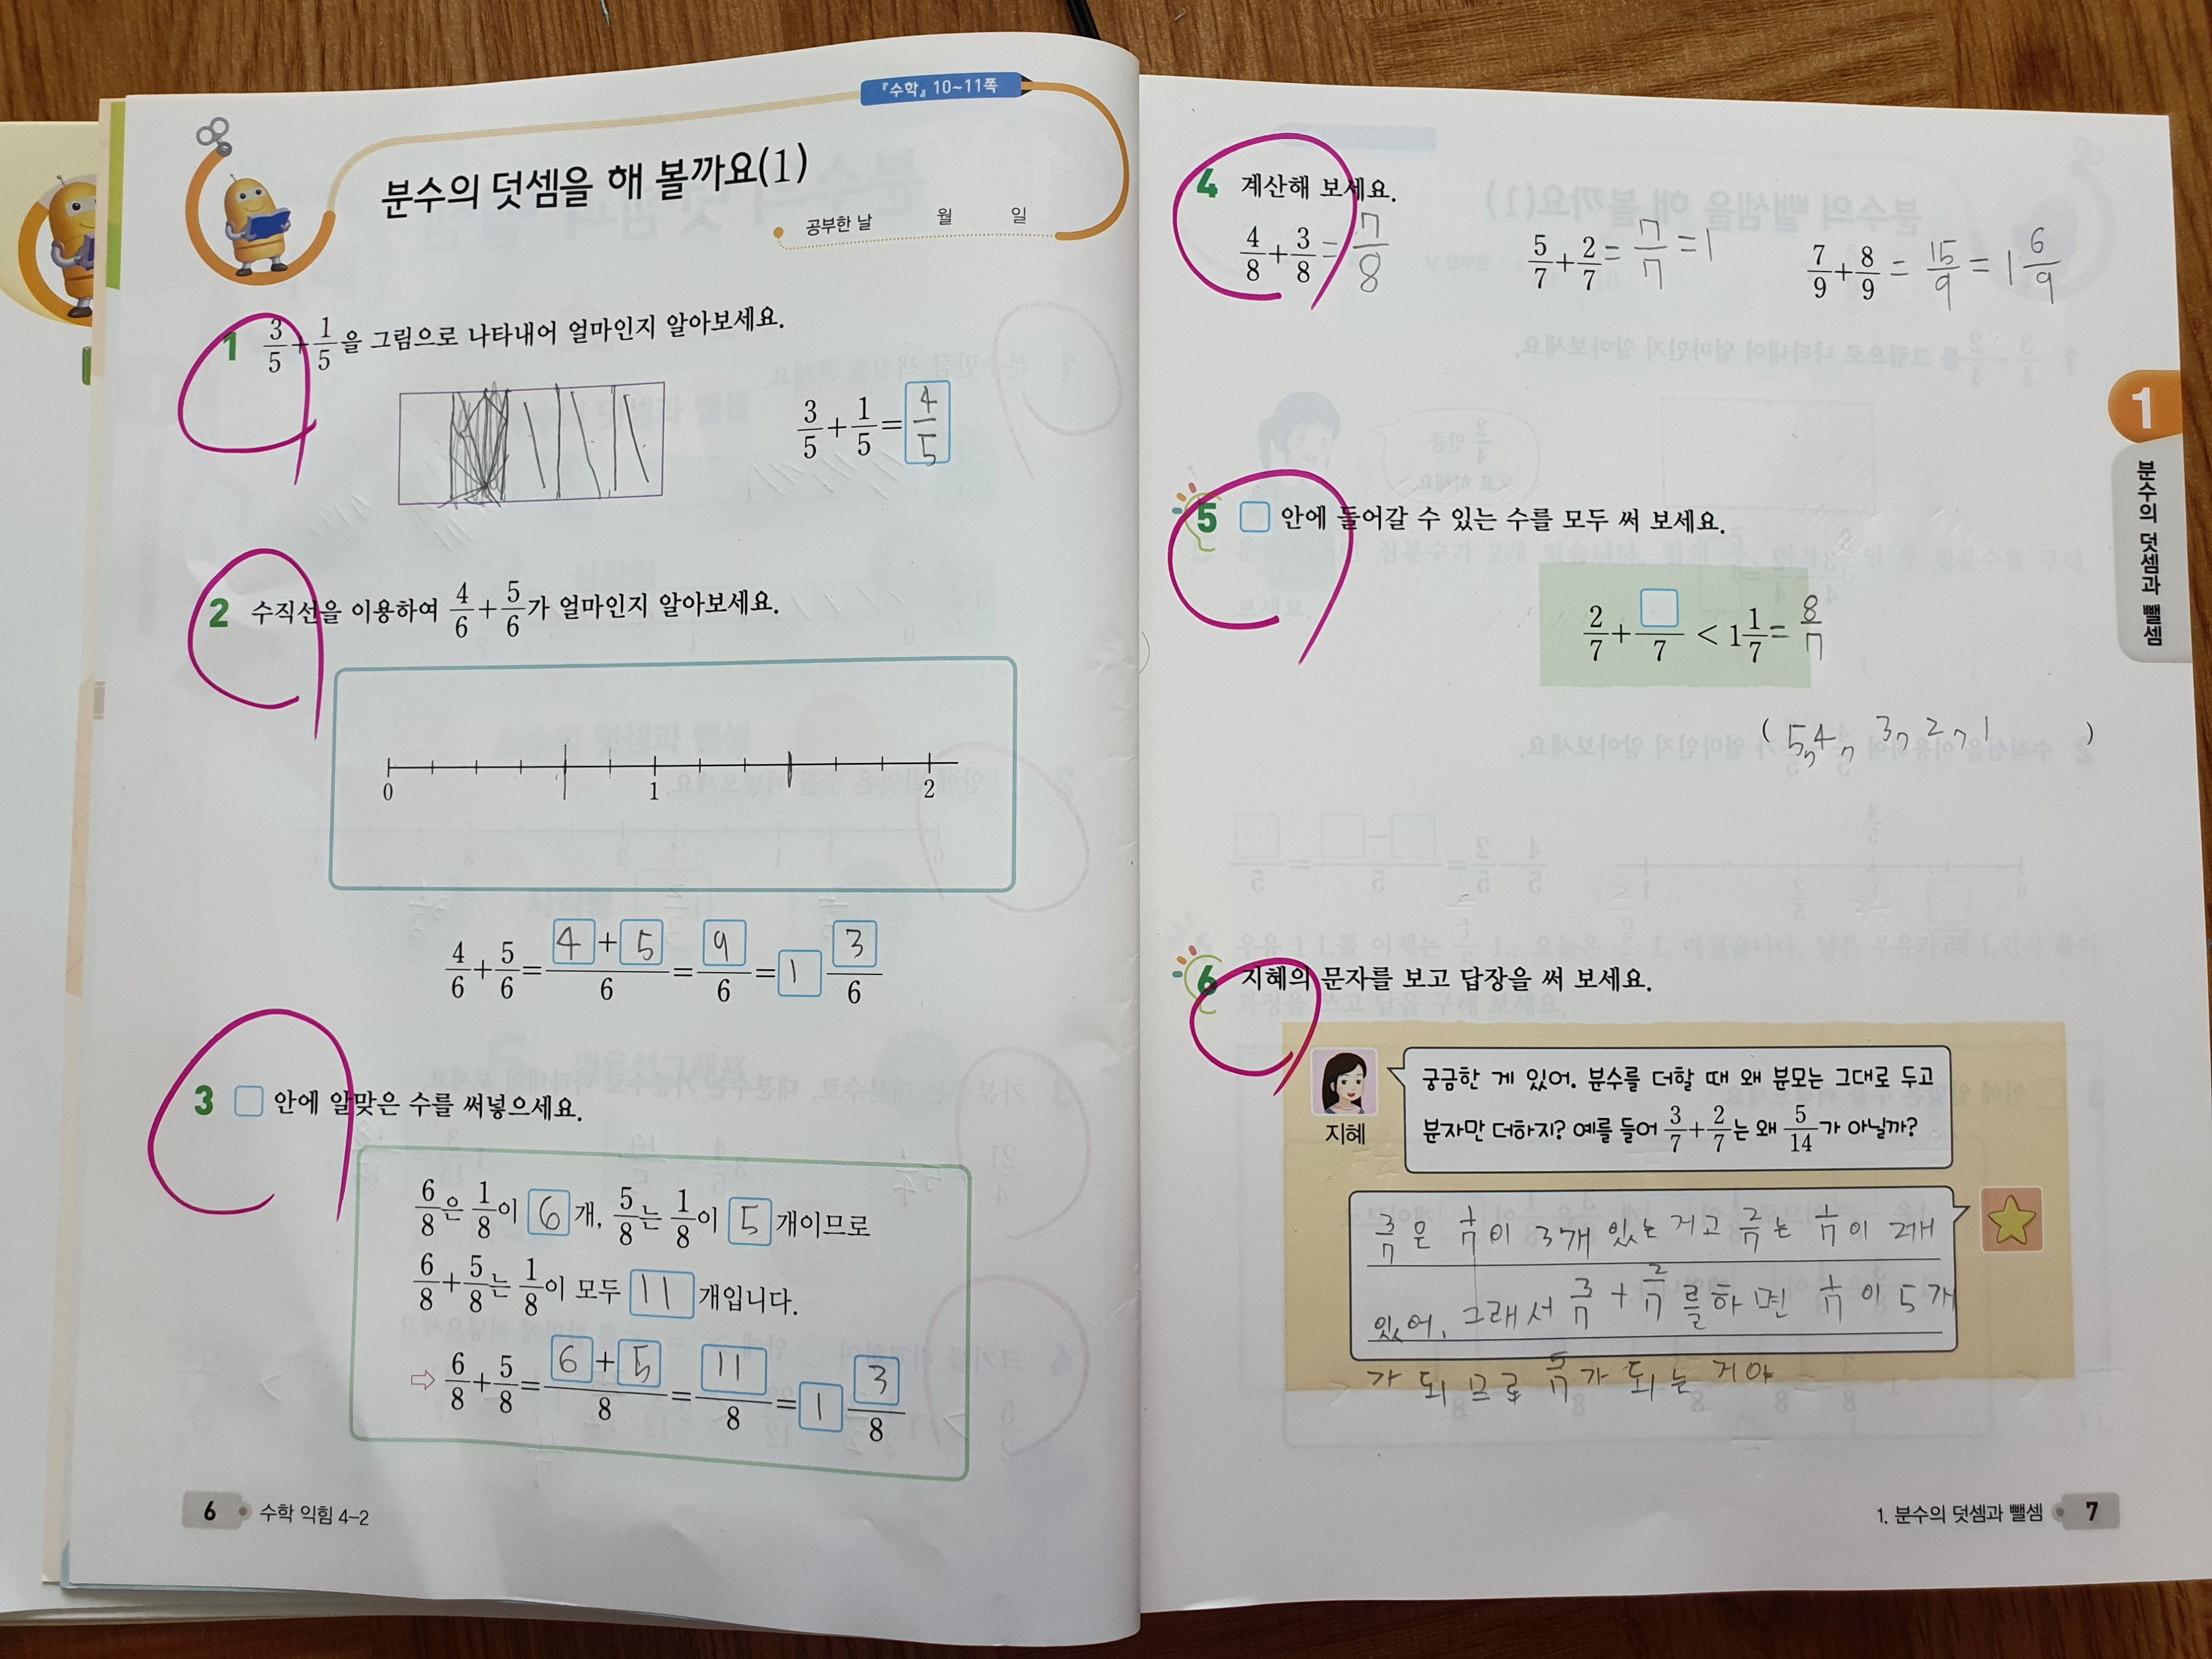 『수학』 10~11쪽
분수의 덧셈을 해 볼까요(1)
공부한 날 월 일
1 3/5+1/5을 그림으로 나타내어 얼마인지 알아보세요.
3/5+1/5=4/5
2 수직선을 이용하여 4/6+5/6가 얼마인지 알아보세요.
0 1 2
4/6+5/6=4+5/6=9/6=1 3/6
3 □ 안에 알맞은 수를 써넣으세요.
6/8은 1/8이 6개, 5/8는 1/8이 5개이므로
6/8+5/8는 1/8이 모두 11개입니다.
⇨ 6/8+5/8=6+5/8=11/8=1 3/8
6 수학 익힘 4-2
4 계산해 보세요.
4/8+3/8=7/8 5/7+2/7=7/7=1 7/9+8/9=15/9=1 6/9
5 □ 안에 들어갈 수 있는 수를 모두 써 보세요.
2/7+□/7<1 1/7=8/7
(5, 4, 3, 2, 1)
6 지혜의 문자를 보고 답장을 써 보세요.
궁금한 게 있어. 분수를 더할 때 왜 분모는 그대로 두고
분자만 더하지? 예를 들어 3/7+2/7는 왜 5/14가 아닐까?
지혜
3/7은 1/7이 3개 있는 거고 2/7는 1/7이 2개
있어, 그래서 3/7+2/7를하면 1/7이 5개
가 되므로 5/7가 되는 거야
1. 분수의 덧셈과 뺄셈 7
1
분수의 덧셈과 뺄셈